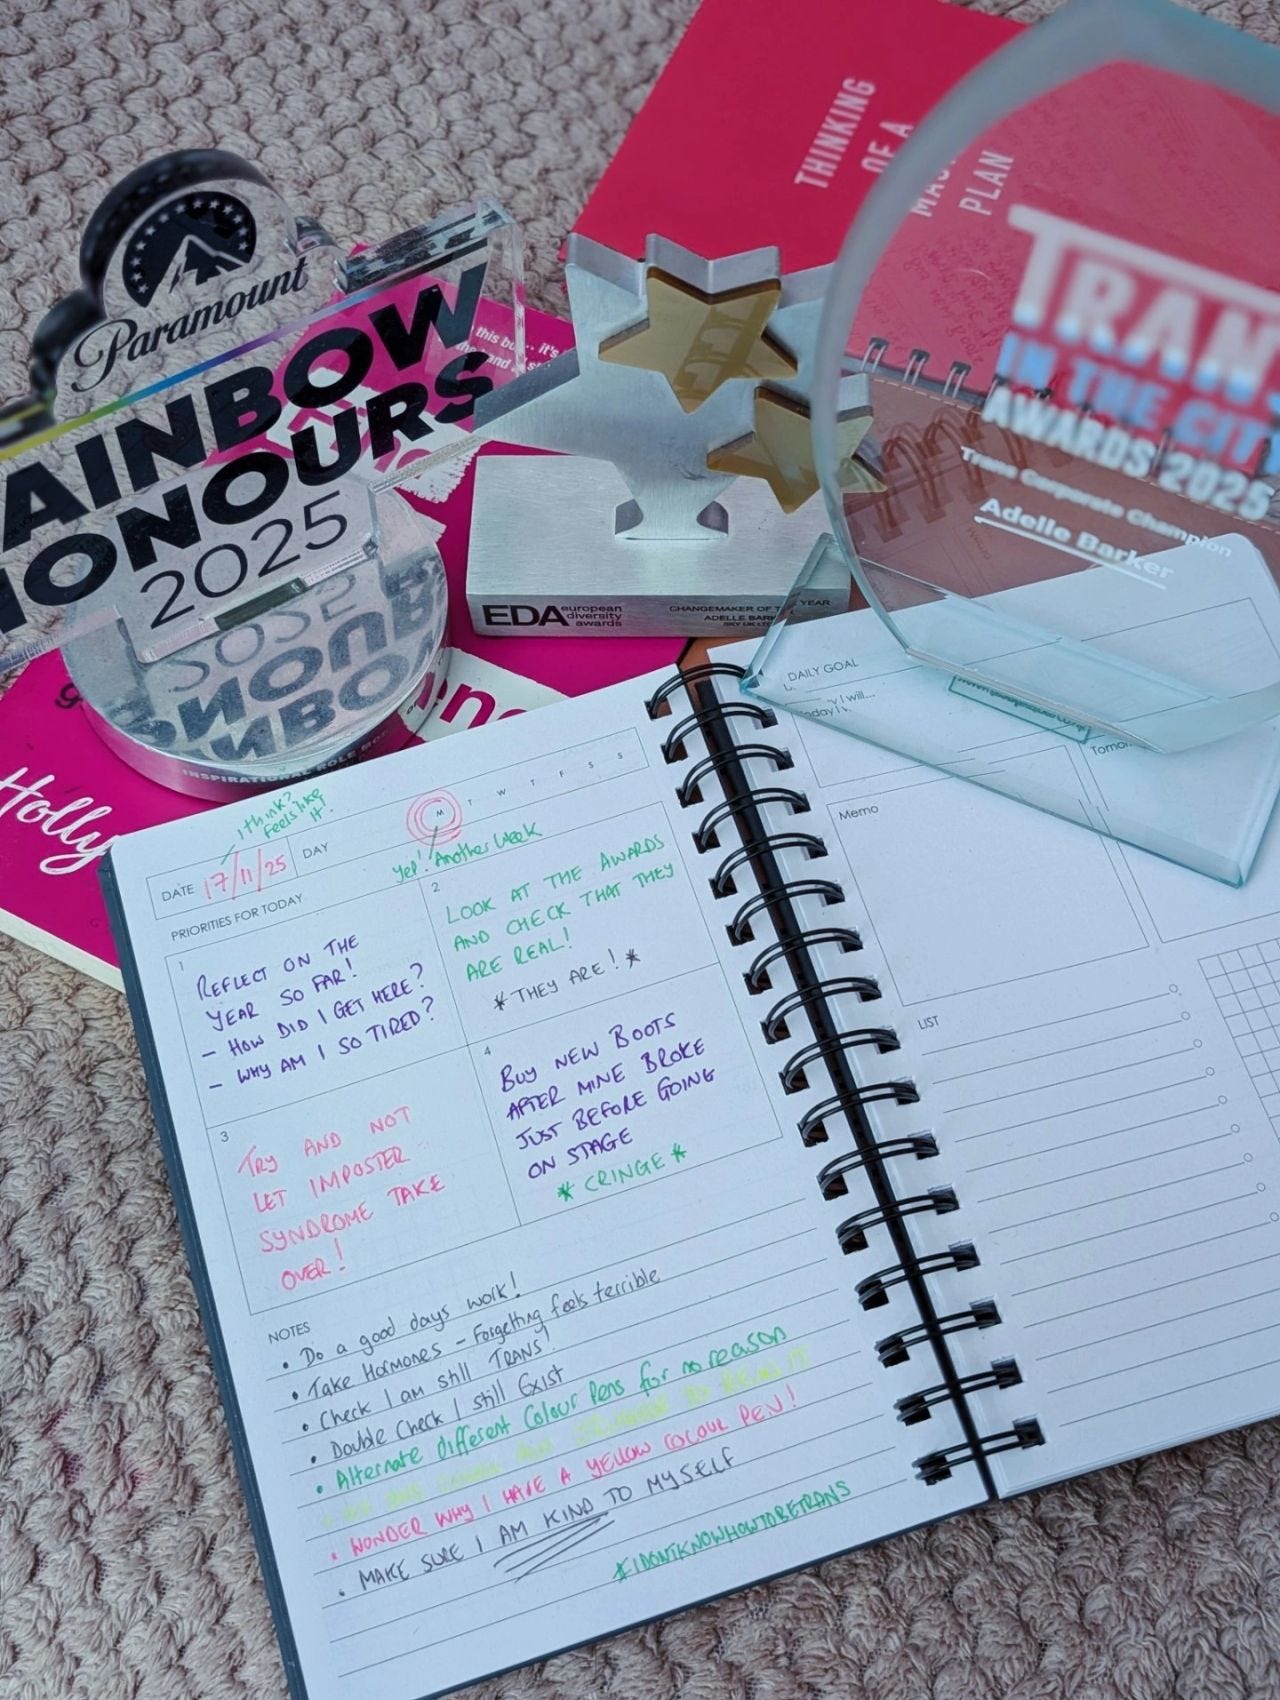 THINKING
OF A
PLAN
Paramount
RAINBOW
HONOURS
2025
INSPIRATIONAL ROLE
TRANS
IN THE CITY
AWARDS 2025
Trans Corporate Champion
Adelle Barker
EDA european
diversity
awards
CHANGEMAKER OF THE YEAR
ADELLE BARKER
SKY UK LTD
Holly
I think?
Feels like
it!
DATE 17/11/25
DAY M T W T F S S
Yep! Another Week
PRIORITIES FOR TODAY
1
REFLECT ON THE
YEAR SO FAR!
- HOW DID I GET HERE?
- WHY AM I SO TIRED?
2
LOOK AT THE AWARDS
AND CHECK THAT THEY
ARE REAL!
* THEY ARE! *
3
TRY AND NOT
LET IMPOSTER
SYNDROME TAKE
OVER!
4
BUY NEW BOOTS
AFTER MINE BROKE
JUST BEFORE GOING
ON STAGE
* CRINGE *
NOTES
• Do a good days work!
• Take Hormones - Forgetting feels terrible
• Check I am still TRANS!
• Double Check I still Exist
• Alternate different Colour Pens for no reason
• WONDER WHY I HAVE A YELLOW COLOUR PEN!
• MAKE SURE I AM KIND TO MYSELF
#IDONTKNOWHOWTOBETRANS
DAILY GOAL
Memo
LIST